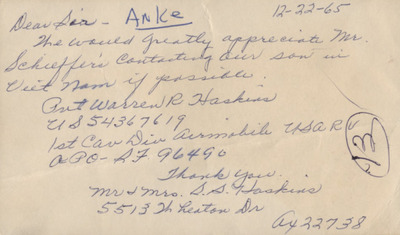 Dear Sir - ANKe 12-22-65
We would greatly appreciate Mr.
Schieffer's contacting our son in
Viet Nam if possible.
Pvt Warren R Haskins
US 54367619
1st Cav Div Airmobile USARV
APO - SF. 96490
13
Thank you.
Mr & Mrs. S. S. Haskins
5513 Wheaton Dr
AX22738